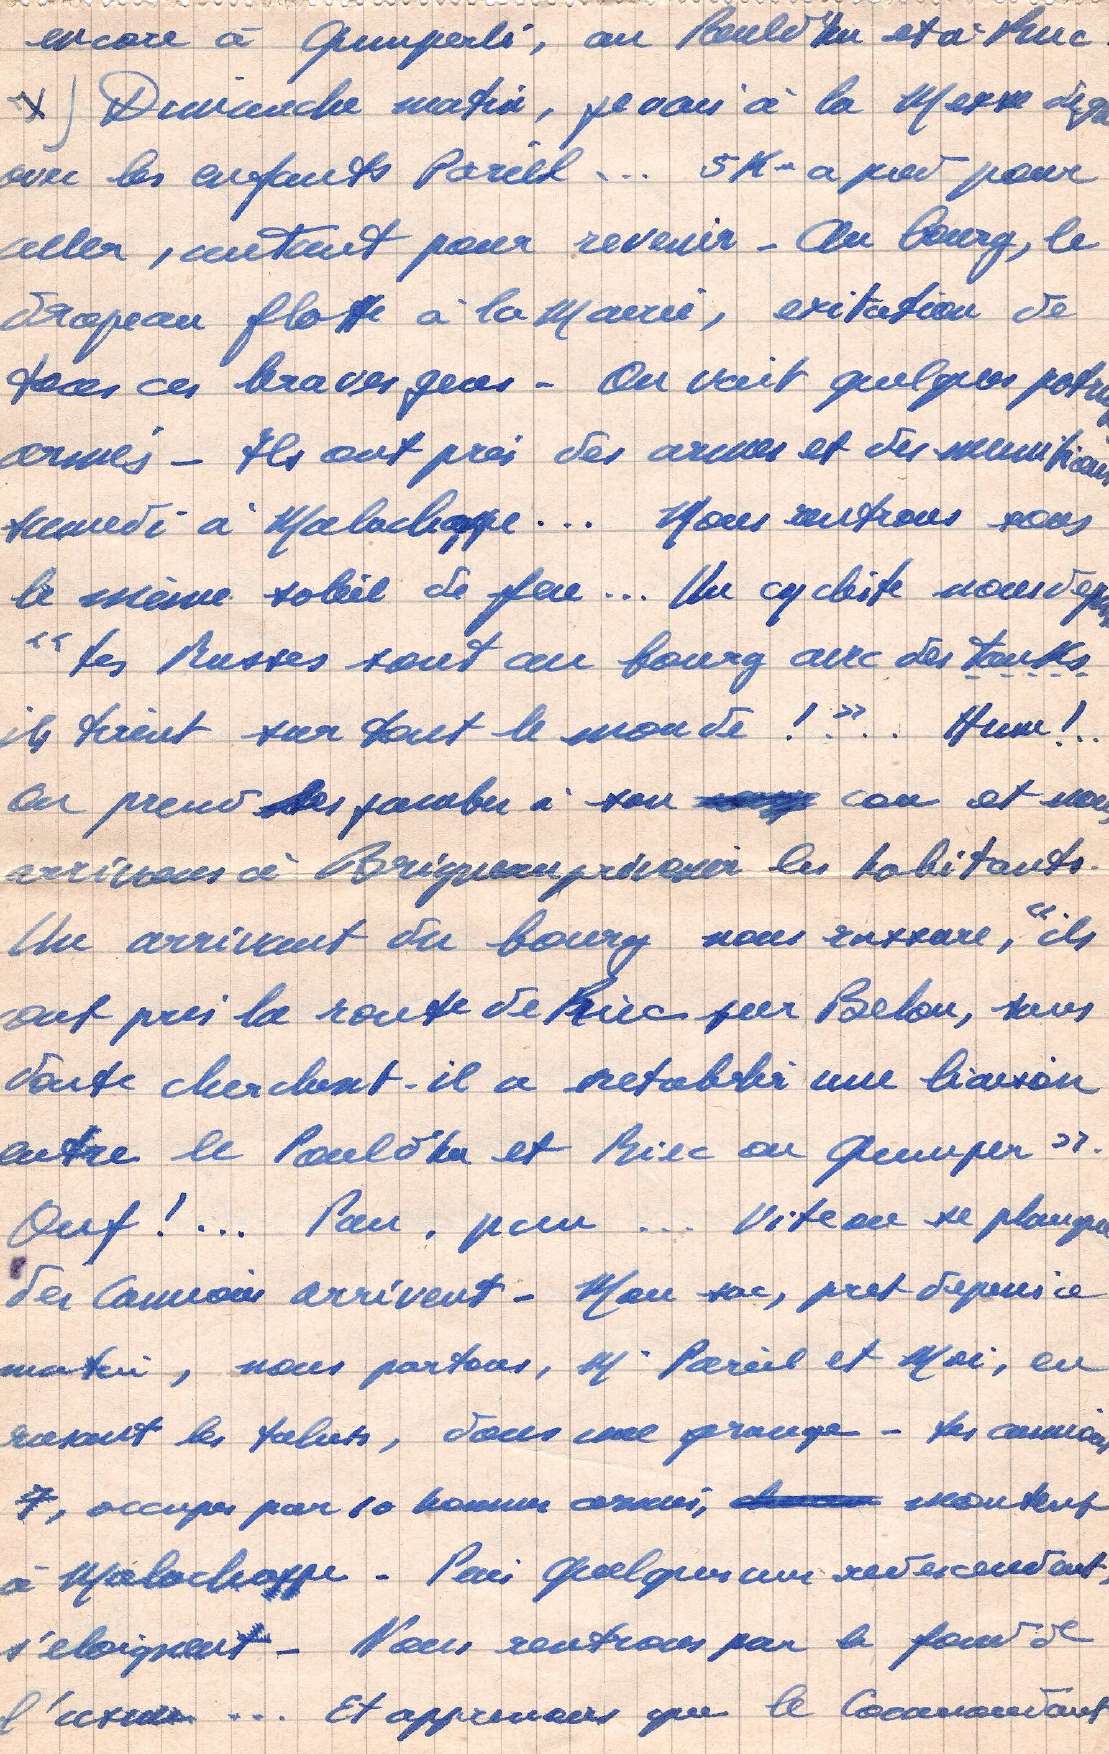 encore à Quimperlé, au Pouldhu et à Riec.
x) Dimanche matin, je vais à la Messe
avec les enfants Pareil ... 5 K- a pied pour
aller, autant pour revenir - Au bourg, le
drapeau flotte à la Mairie, exitation de
tous ces braves gens - On voit quelques
armés - Ils ont pris des armes et des munitions
samedi à Malachappe ... Nous rentrons sous
le même soleil de feu ... Un cycliste nous
"Les Russes sont au bourg avec des tanks
ils tirent sur tout le monde !"... Hum !..
On prend ses jambes à son cou et nous
arrivons à Brigneau prévenir les habitants.
Un arrivant du bourg nous rassure, "ils
ont pris la route de Riec sur Belon, sans
doute cherchent-il a retablir une liaison
entre le Pould'hu et Riec ou Quimper".
Ouf !... Pan, pan ... Vite on se planque
des Camions arrivent - Mon sac, pret depuis ce
matin, nous partons, Mr Pareil et Moi, en
rasant les talus, dans une grange - Les camions
7, occupés par 10 hommes armés, montent
à Malachappe - Puis quelques uns redescendent,
s'eloignent - Nous rentrons par le fond de
l'usine ... Et apprenons que le Commandant